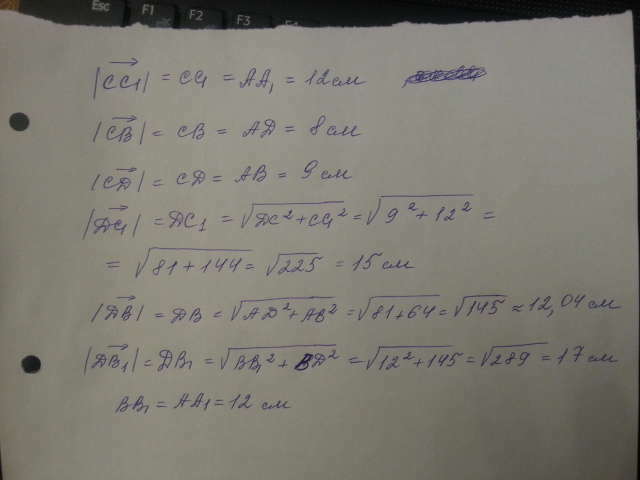 Esc F1 F2 F3 F4
|CC₁| = CC₁ = AA₁ = 12 см
|CB| = CB = AD = 8 см
|CD| = CD = AB = 9 см
|DC₁| = DC₁ = √DC² + CC₁² = √9² + 12² =
= √81 + 144 = √225 = 15 см
|DB| = DB = √AD² + AB² = √81 + 64 = √145 ≈ 12,04 см
|DB₁| = DB₁ = √BB₁² + BD² = √12² + 145 = √289 = 17 см
BB₁ = AA₁ = 12 см